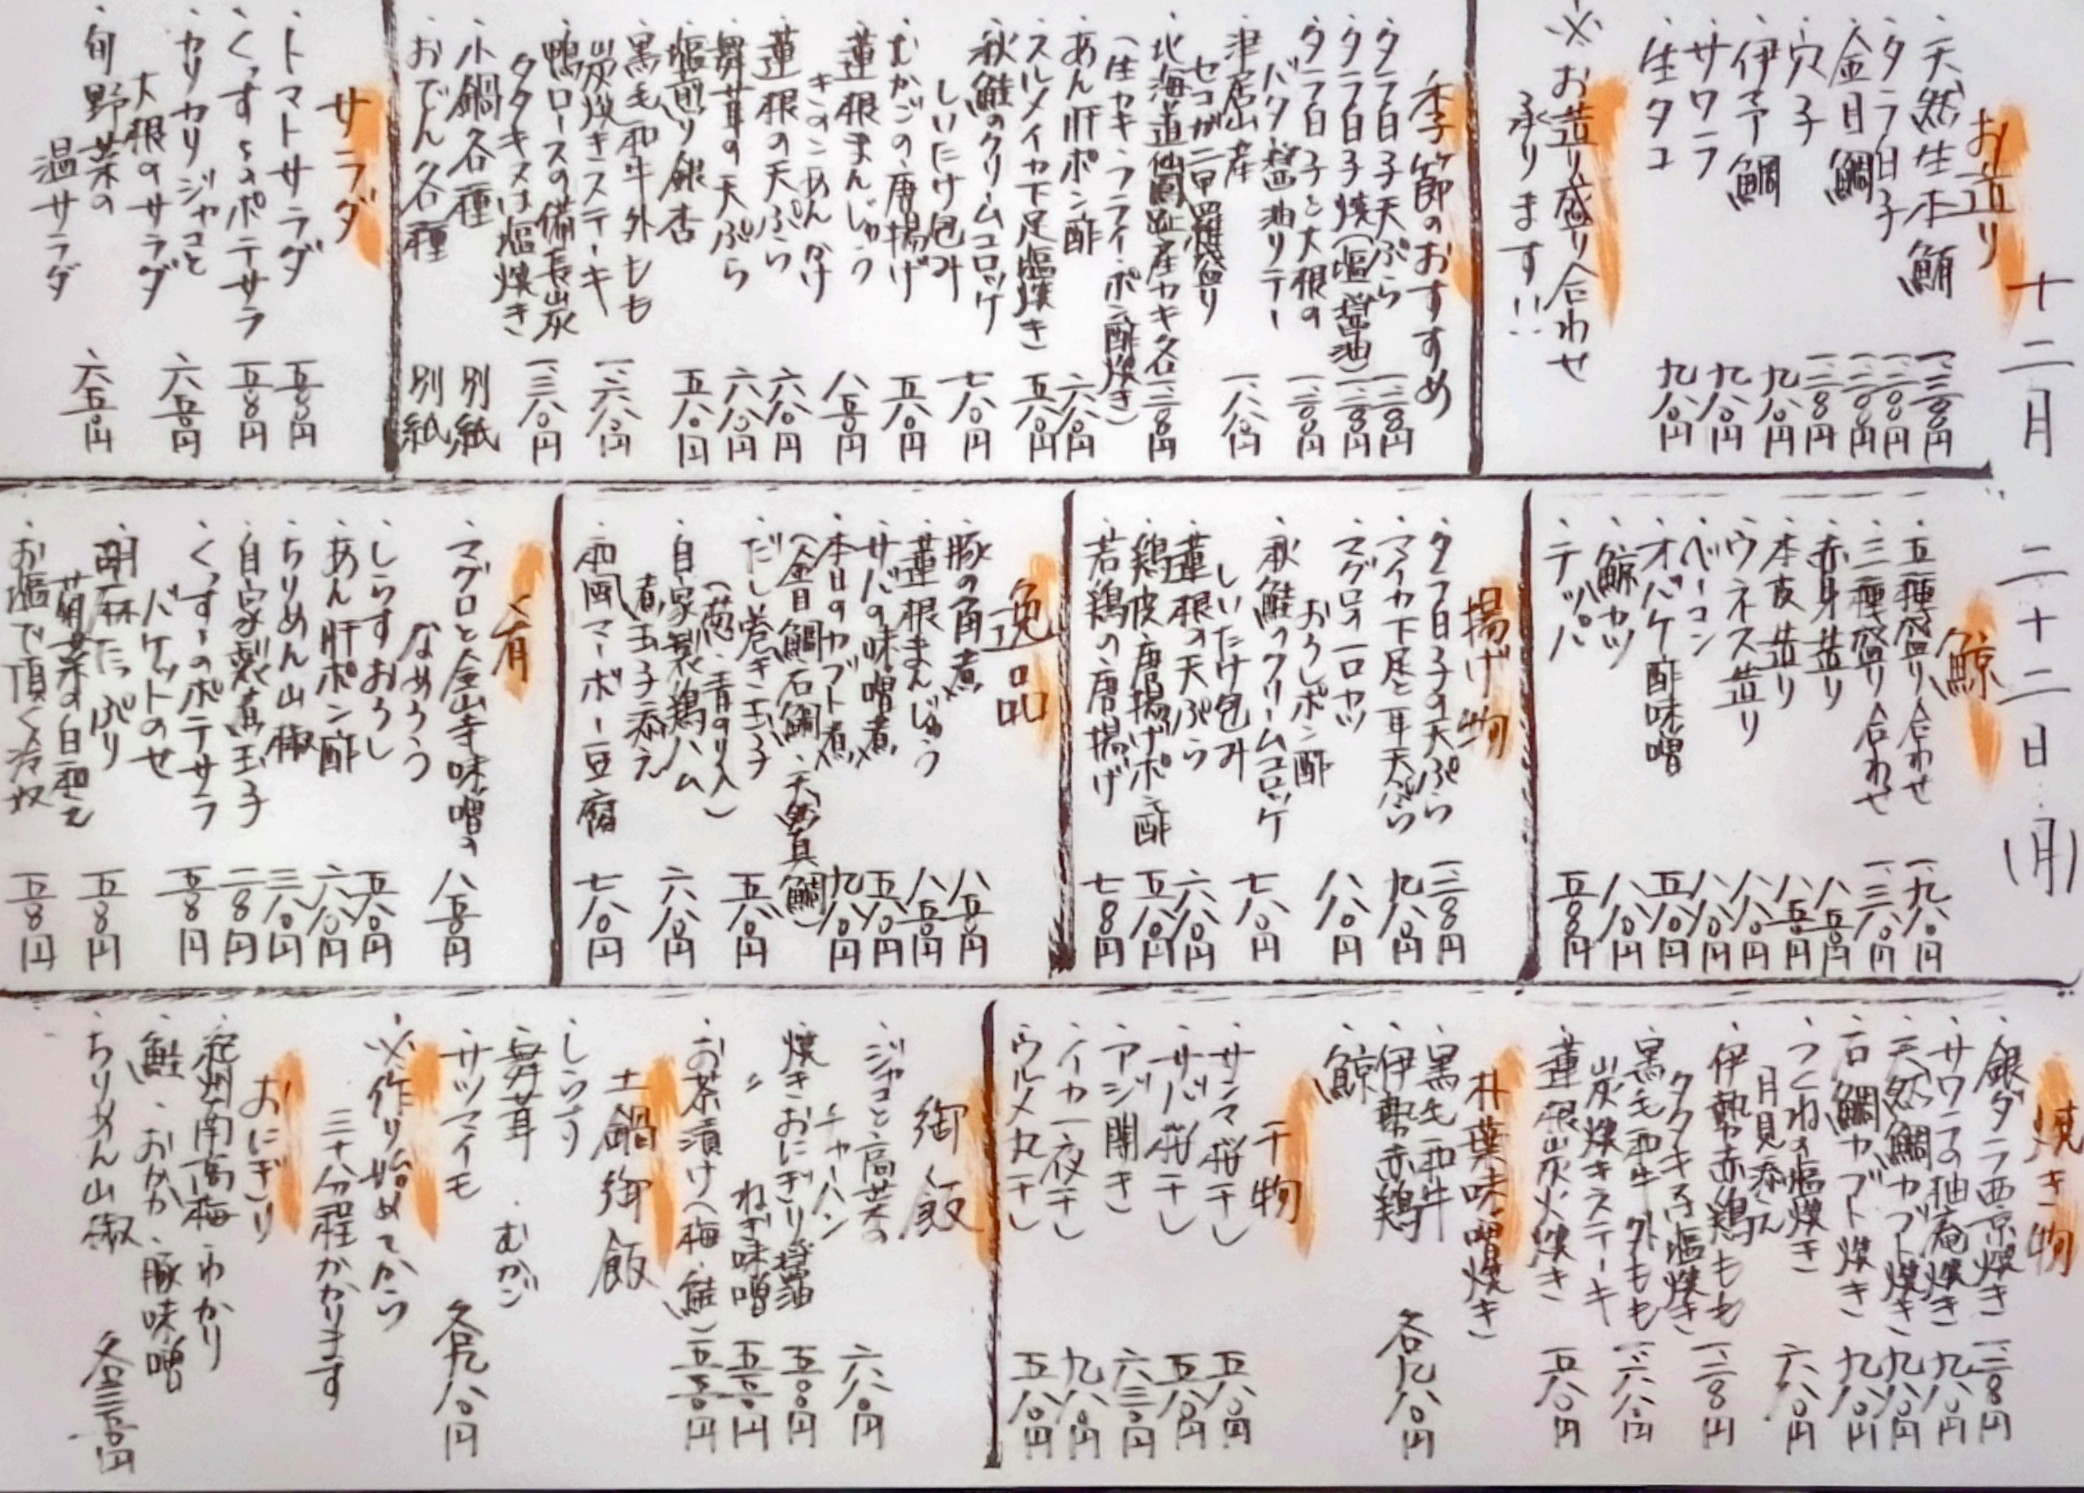 十二月二十二日(月)
お造り
・天然生本鮪 一、三八〇円
・タラ白子
・金目鯛
・穴子
・伊予鯛 九八〇円
・サワラ 九八〇円
・生タコ 九八〇円
※お造り盛り合わせ
承ります!!
季節のおすすめ
・タラ白子天ぷら 一、二八〇円
・タラ白子焼(塩・醤油) 一、二八〇円
・タラ白子と大根の
バター醤油ソテー
津居山産
セコガニ甲羅盛り 一、八八〇円
・北海道仙鳳趾産カキ各 一、二八〇円
(生カキ・フライ・ポン酢・焼き)
・あん肝ポン酢 六八〇円
・スルメイカ下足塩焼き 五八〇円
・秋鮭のクリームコロッケ
しいたけ包み 七八〇円
・むかごの唐揚げ 五八〇円
・蓮根まんじゅう
きのこあんかけ 八五〇円
・蓮根の天ぷら 六八〇円
・舞茸の天ぷら 六八〇円
・塩煎り銀杏 五八〇円
・黒毛和牛外もも
炭焼きステーキ 一、六八〇円
・鴨ロースの備長炭
タタキ又は塩焼き 一、三八〇円
・小鍋各種 別紙
・おでん各種 別紙
サラダ
・トマトサラダ 五八〇円
・くっすーのポテサラ 五八〇円
・カリカリジャコと
大根のサラダ 六五〇円
・旬野菜の
温サラダ 六五〇円
鯨
・五種盛り合わせ 一、九八〇円
・三種盛り合わせ 一、三八〇円
・赤身造り 八五〇円
・本皮造り 八五〇円
・ウネス造り 八八〇円
・ベーコン 八八〇円
・オバケ酢味噌 五八〇円
・鯨カツ 八八〇円
・テッパ 五八〇円
揚げ物
・タラ白子の天ぷら 一、二八〇円
・マイカ下足と耳天ぷら 九八〇円
・マグロの一口カツ
おろしポン酢 八八〇円
・秋鮭のクリームコロッケ
しいたけ包み 七八〇円
・蓮根の天ぷら 六八〇円
・鶏皮唐揚げポン酢 五八〇円
・若鶏の唐揚げ 七八〇円
逸品
・豚の角煮 八五〇円
・蓮根まんじゅう 八五〇円
・サバの味噌煮 五八〇円
・本日のカブト煮 九八〇円
(金目鯛・石鯛・天然真鯛)
・だし巻き玉子 五八〇円
(葱・青のり入)
・自家製鶏ハム
煮玉子添え 六八〇円
・和風マーボー豆腐 七八〇円
肴
・マグロと金山寺味噌の
なめろう 八五〇円
・しらすおろし 五八〇円
・あん肝ポン酢 六八〇円
・ちりめん山椒 三八〇円
・自家製煮玉子 二八〇円
・くっすーのポテサラ
バケットのせ 五八〇円
・胡麻たっぷり
菊菜の白和え 五八〇円
・お塩で頂く冷奴 五八〇円
焼き物
・銀ダラ西京焼き 一、二八〇円
・サワラの柚庵焼き 九八〇円
・天然鯛カブト焼き 九八〇円
・石鯛カブト焼き 九八〇円
・つくねの塩焼き
月見添え 六八〇円
・伊勢赤鶏もも
タタキ又は塩焼き 一、二八〇円
・黒毛和牛外もも
炭焼きステーキ 一、六八〇円
・蓮根炭火焼き 五八〇円
朴葉味噌焼き
・黒毛和牛
・伊勢赤鶏 各九八〇円
・鯨
干物
・サンマ桜干し 五八〇円
・サバ桜干し 五八〇円
・アジ開き 六三〇円
・イカ一夜干し 九八〇円
・ウルメ丸干し 五八〇円
御飯
・ジャコと高菜の
チャーハン 六八〇円
・焼きおにぎり醤油 五〇〇円
・〃 ねぎ味噌 五五〇円
・お茶漬け(梅・鮭) 五五〇円
土鍋御飯
・しらす
・舞茸 ・むかご
・サツマイモ 各九八〇円
※作り始めてから
三十分程かかります
おにぎり
・紀州南高梅・わかり
・鮭・おかか・豚味噌
・ちりめん山椒 各三五〇円